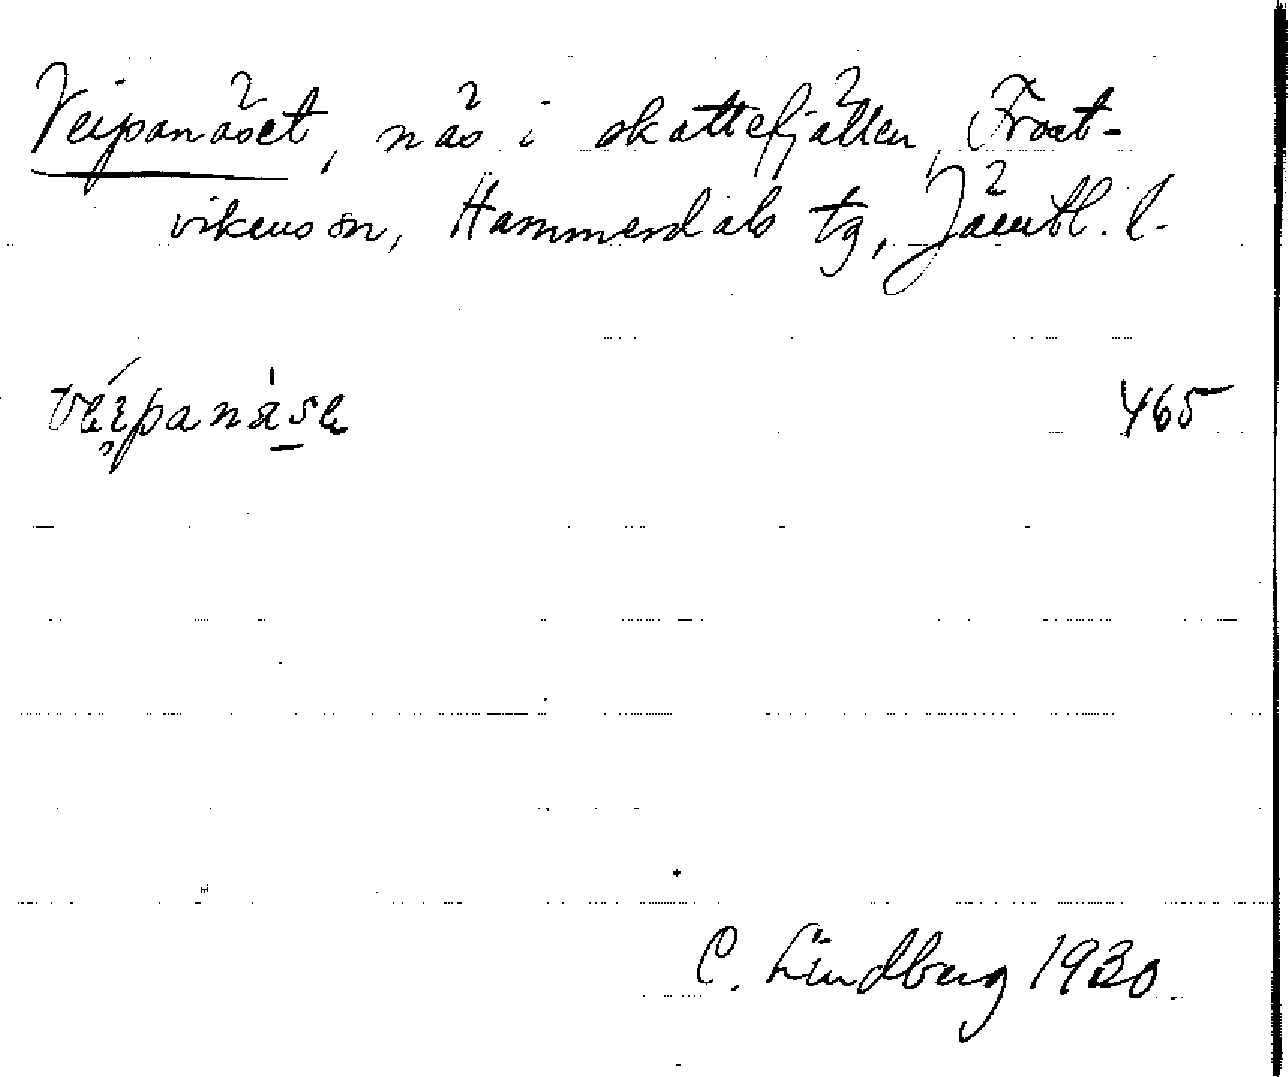 Veipanäset, näs i skattefjällen, Frost-
vikens sn, Hammerdals tg, Jämtl. l.
véi̯panàse 465
C. Lindberg 1930.